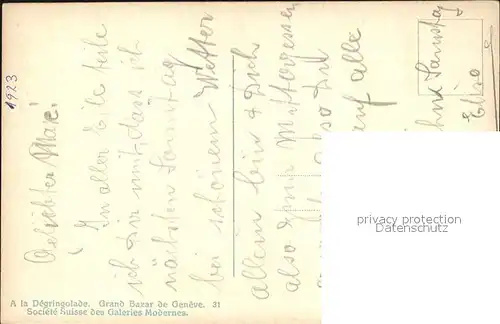 1923
Geliebter Max!
In aller Eile teile
ich Dir mit, dass ich
nächsten Sonntag
bei schönem Wetter
allein bin & Dich
also zum Mittagessen
also
auf alle
Samstag
A la Dégringolade. Grand Bazar de Genève. 31
Société Suisse des Galeries Modernes.
privacy protection
watermark